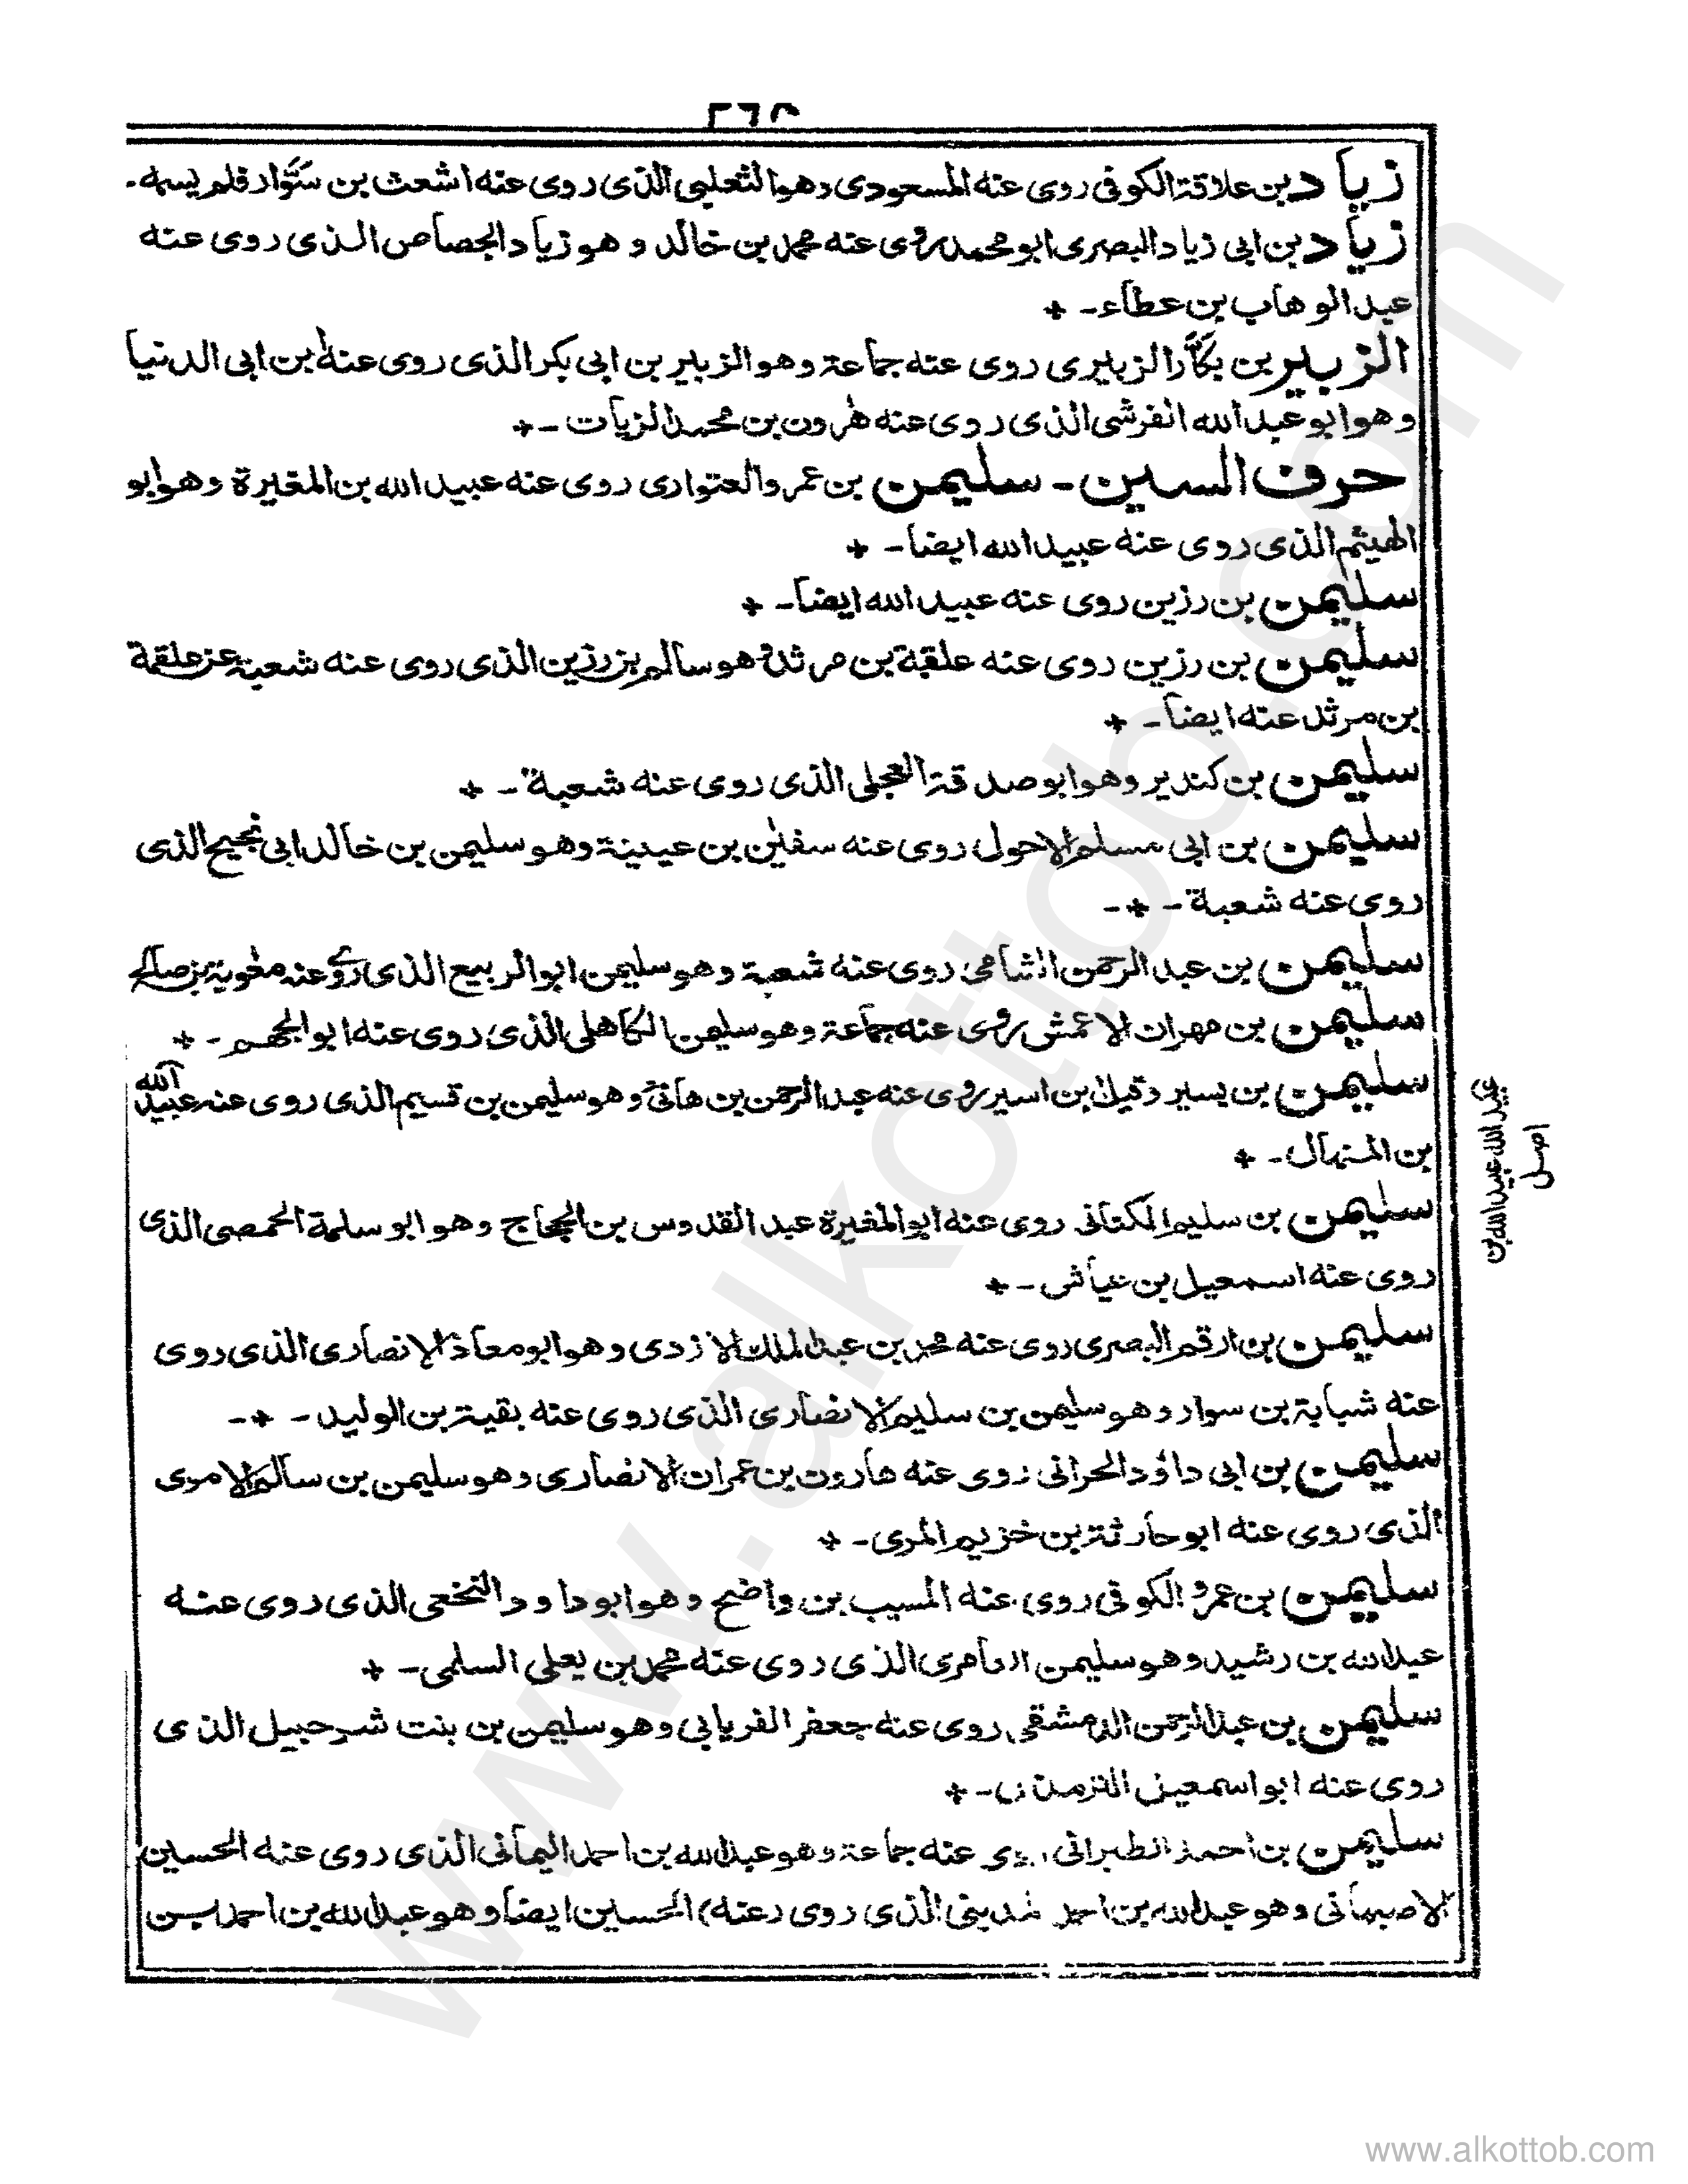 زياد بن علاقة الكوفى روى عنه المسعودى وهو الثعلبى الذى روى عنه اشعث بن سوّار فلم يسمه۔
زياد بن ابى زياد البصرى ابو محمد روى عنه محمد بن خالد وهو زياد الجصاص الذى روى عنه
عبد الوهاب بن عطاء۔ +
الزبير بن بكّار الزبيرى روى عنه جماعة وهو الزبير بن ابى بكر الذى روى عنه ابن ابى الدنيا
وهو ابو عبد الله القرشى الذى روى عنه هٰرون بن محمد الزيات ۔+
حرف السين ۔ سليمن بن عمرو العتوارى روى عنه عبيد الله بن المغيرة وهو ابو
الهيثم الذى روى عنه عبيد الله ايضا۔ +
سليمن بن رزين روى عنه عبيد الله ايضا۔ +
سليمن بن رزين روى عنه علقمة بن مرثد وهو سالم بن رزين الذى روى عنه شعبة عن علقمة
بن مرثد عنه ايضا۔ +
سليمن بن كندير وهو ابو صدقة العجلى الذى روى عنه شعبة ۔ +
سليمن بن ابى مسلم الاحول روى عنه سفيٰن بن عيينة وهو سليمن بن خالد ابى نجيح الذى
روى عنه شعبة ۔ +۔
سليمن بن عبد الرحمن الشامى روى عنه شعبة وهو سليمن ابو الربيع الذى روى عنه معٰوية بن صالح
سليمن بن مهران الاعمش روى عنه جماعة وهو سليمن الكاهلى الذى روى عنه ابو الجهم ۔ +
سليمن بن يسير وقيل بن اسير روى عنه عبد الرحمن بن هانئ وهو سليمن بن قسيم الذى روى عنه عبيد الله
بن المنهال ۔ +
سليمن بن سليم الكنانى روى عنه ابو المغيرة عبد القدوس بن الحجاج وهو ابو سلمة الحمصى الذى
روى عنه اسمعيل بن عياش ۔ +
سليمن بن ارقم البصرى روى عنه محمد بن عبد الملك الازدى وهو ابو معاذ الانصارى الذى روى
عنه شبابة بن سوار وهو سليمن بن سليم الانصارى الذى روى عنه بقية بن الوليد ۔ +۔
سليمن بن ابى داؤد الحرانى روى عنه هارون بن عمران الانصارى وهو سليمن بن سالم الاموى
الذى روى عنه ابو حارثة بن خزيم المرى۔ +
سليمن بن عمرو الكوفى روى عنه المسيب بن واضح وهو ابو داود النخعى الذى روى عنه
عبد الله بن رشيد وهو سليمن العامرى الذى روى عنه محمد بن يعلى السلمى۔ +
سليمن بن عبد الرحمن الدمشقى روى عنه جعفر الفريابى وهو سليمن بن بنت شرحبيل الذى
روى عنه ابو اسمعيل الترمذى۔ +
سليمن بن احمد الطبرانى روى عنه جماعة وهو عبد الله بن احمد اليمانى الذى روى عنه الحسين
الاصبهانى وهو عبد الله بن احمد المدينى الذى روى (عنه) الحسين ايضا وهو عبد الله بن احمد بن
عبيد الله عبيد الله بن
اصل
www.alkottob.com
www.alkottob.com